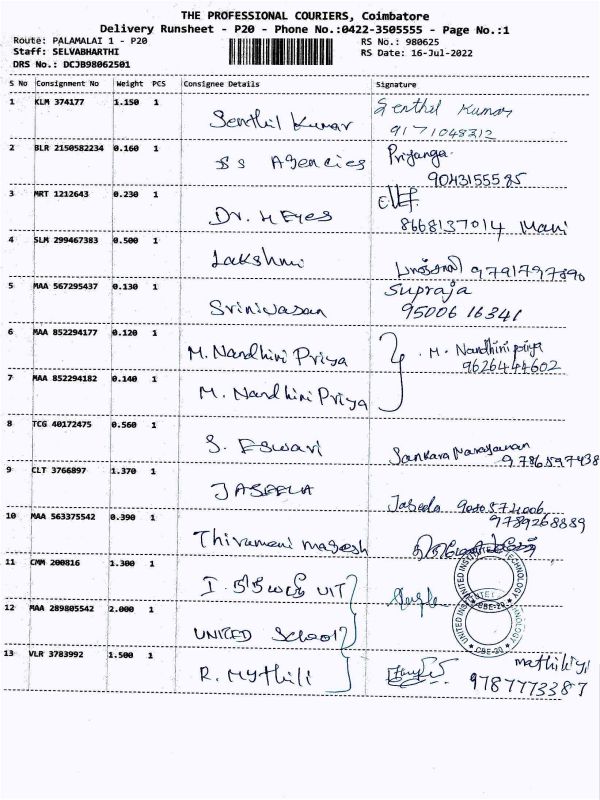 THE PROFESSIONAL COURIERS, Coimbatore
Delivery Runsheet - P20 - Phone No.:0422-3505555 - Page No.:1
Route: PALAMALAI 1 - P20
RS No.: 980625
Staff: SELVABHARTHI
RS Date: 16-Jul-2022
DRS No.: DCJB98062501
S No Consignment No Weight PCS Consignee Details Signature
1 KLM 374177 1.150 1 Senthil Kumar Senthil Kumar
9171048212
2 BLR 2150582234 0.160 1 SS Agencies Priyanga
9043155585
3 MRT 1212643 0.230 1 Dr. H Eyes
8668137014 Mani
4 SLM 299467383 0.500 1 Lakshmi 9791797890
5 MAA 567295437 0.130 1 Srinivasan Supraja
95006 16341
6 MAA 852294177 0.120 1 M. Nandhini Priya M. Nandhini priya
9626444602
7 MAA 852294182 0.140 1 M. Nandhini Priya
8 TCG 40172475 0.560 1 S. Eswari Sankara Narayanan
9786597438
9 CLT 3766897 1.370 1 JASEELA Jaseela
9789268889
10 MAA 563375542 0.390 1 Thiramani magesh
11 CMM 200816 1.300 1 UIT
12 MAA 289805542 2.000 1 UNITED School
CBE-20
13 VLR 3783992 1.500 1 R. Mythili
9787773387